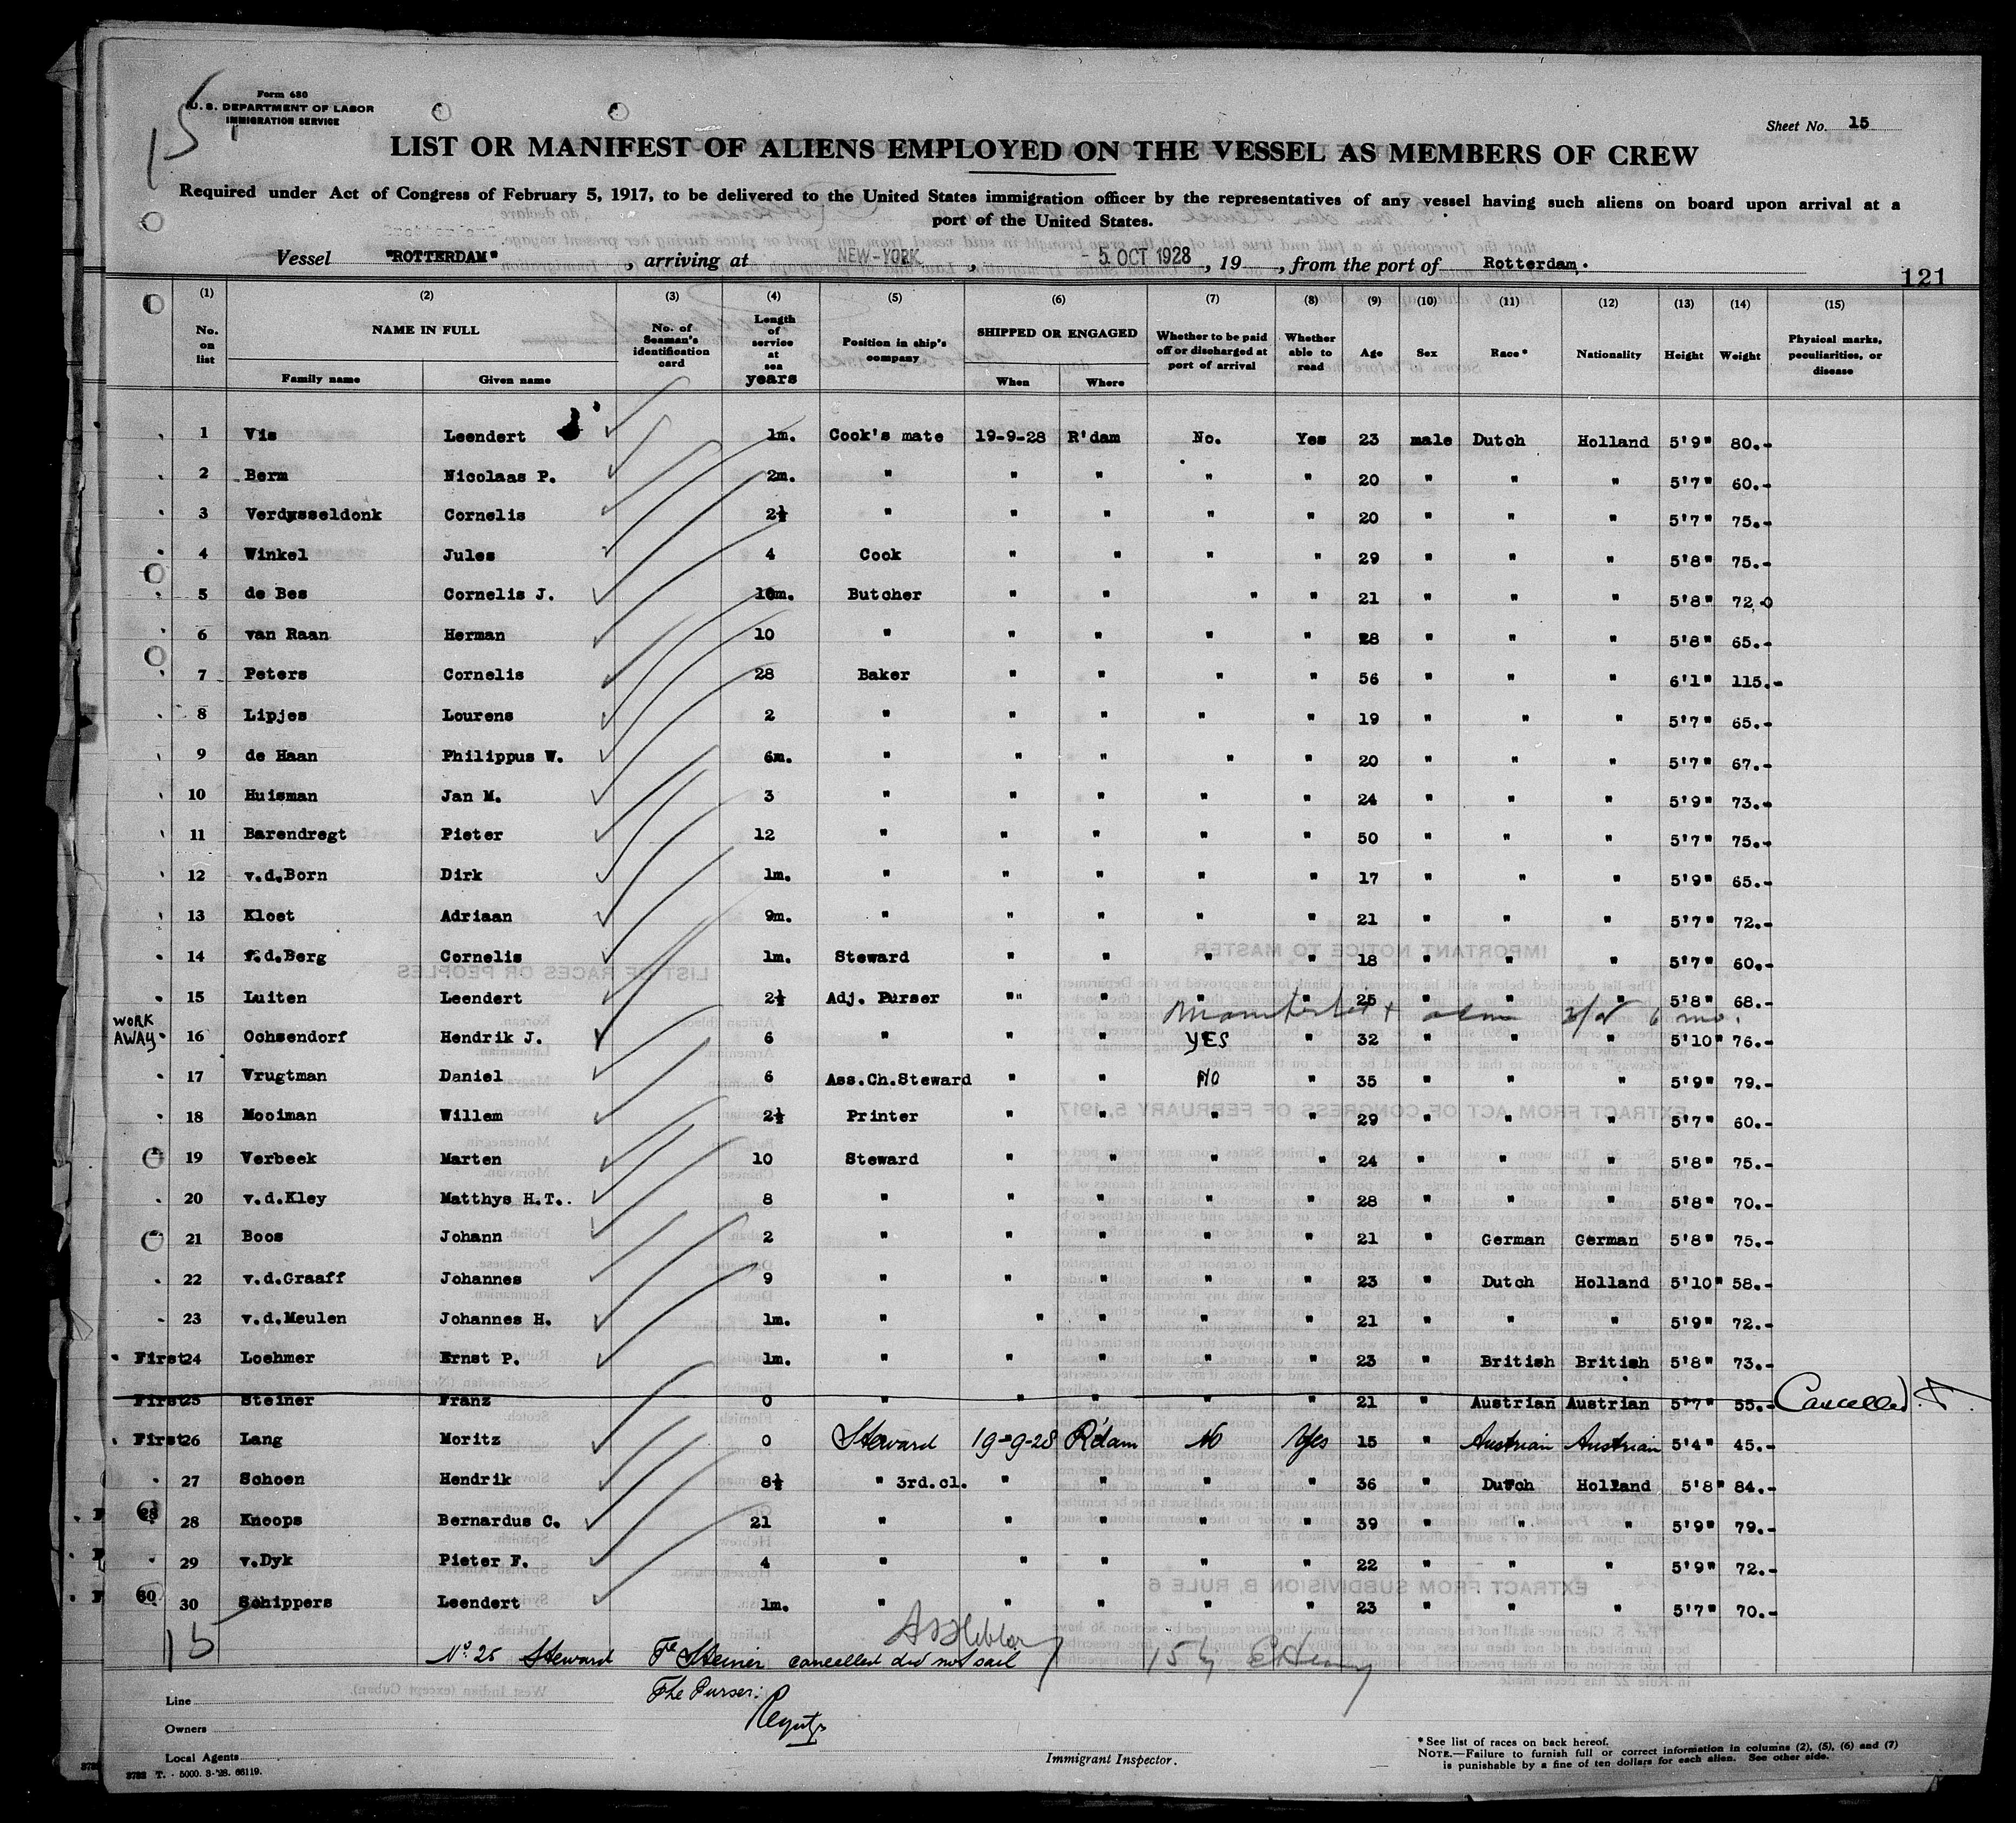 15
Form 680
U. S. DEPARTMENT OF LABOR
IMMIGRATION SERVICE
Sheet No. 15
LIST OR MANIFEST OF ALIENS EMPLOYED ON THE VESSEL AS MEMBERS OF CREW
Required under Act of Congress of February 5, 1917, to be delivered to the United States immigration officer by the representatives of any vessel having such aliens on board upon arrival at a
port of the United States.
Vessel "ROTTERDAM", arriving at NEW-YORK, - 5. OCT 1928, 19, from the port of Rotterdam.
121
(1) (2) (3) (4) (5) (6) (7) (8) (9) (10) (11) (12) (13) (14) (15)
No. on list NAME IN FULL Family name Given name No. of Seaman's identification card Length of service at sea years Position in ship's company SHIPPED OR ENGAGED When Where Whether to be paid off or discharged at port of arrival Whether able to read Age Sex Race* Nationality Height Weight Physical marks, peculiarities, or disease
1 Vis Leendert 1m. Cook's mate 19-9-28 R'dam No. Yes 23 male Dutch Holland 5'9" 80.-
2 Berm Nicolaas P. 2m. " " " " " 20 " " " 5'7" 60.-
3 Verdysseldonk Cornelis 2½ " " " " " 20 " " " 5'7" 75.-
4 Winkel Jules 4 Cook " " " " 29 " " " 5'8" 75.-
5 de Bes Cornelis J. 10m. Butcher " " " " 21 " " " 5'8" 72.0
6 van Raan Herman 10 " " " " " 28 " " " 5'8" 65.-
7 Peters Cornelis 28 Baker " " " " 56 " " " 6'1" 115.-
8 Lipjes Lourens 2 " " " " " 19 " " " 5'7" 65.-
9 de Haan Philippus W. 6m. " " " " " 20 " " " 5'7" 67.-
10 Huisman Jan M. 3 " " " " " 24 " " " 5'9" 73.-
11 Barendregt Pieter 12 " " " " " 50 " " " 5'7" 75.-
12 v.d.Born Dirk 1m. " " " " " 17 " " " 5'9" 65.-
13 Kloet Adriaan 9m. " " " " " 21 " " " 5'7" 72.-
14 v.d.Berg Cornelis 1m. Steward " " " " 18 " " " 5'7" 60.-
15 Luiten Leendert 2½ Adj. Purser " " " " 25 " " " 5'8" 68.-
6 mo.
WORK AWAY 16 Ochsendorf Hendrik J. 6 " " " YES " 32 " " " 5'10" 76.-
17 Vrugtman Daniel 6 Ass.Ch.Steward " " NO " 35 " " " 5'9" 79.-
18 Mooiman Willem 2½ Printer " " " " 29 " " " 5'7" 60.-
19 Verbeek Marten 10 Steward " " " " 24 " " " 5'8" 75.-
20 v.d.Kley Matthys H.T. 8 " " " " " 28 " " " 5'8" 70.-
21 Boos Johann 2 " " " " " 21 " German German 5'8" 75.-
22 v.d.Graaff Johannes 9 " " " " " 23 " Dutch Holland 5'10" 58.-
23 v.d.Meulen Johannes H. 1m. " " " " " 21 " " " 5'9" 72.-
First 24 Loehmer Ernst P. 1m. " " " " " 23 " British British 5'8" 73.-
First 25 Steiner Franz 0 " " " " " 21 " Austrian Austrian 5'7" 55.- Cancelled.
First 26 Lang Moritz 0 Steward 19-9-28 R'dam No Yes 15 " Austrian Austrian 5'4" 45.-
27 Schoen Hendrik 8½ " 3rd.cl. " " " " 36 " Dutch Holland 5'8" 84.-
F 28 28 Knoops Bernardus C. 21 " " " " " 39 " " " 5'9" 79.-
F 29 v.Dyk Pieter F. 4 " " " " " 22 " " " 5'9" 72.-
F 30 30 Schippers Leendert 1m. " " " " " 23 " " " 5'7" 70.-
15
No. 25 Steward Fr Steiner cancelled did not sail
The Purser:
15 by
Line
Owners
Local Agents
Immigrant Inspector.
*See list of races on back hereof.
NOTE.—Failure to furnish full or correct information in columns (2), (5), (6) and (7)
is punishable by a fine of ten dollars for each alien. See other side.
3732 T. - 5000. 3-'28. 66119.